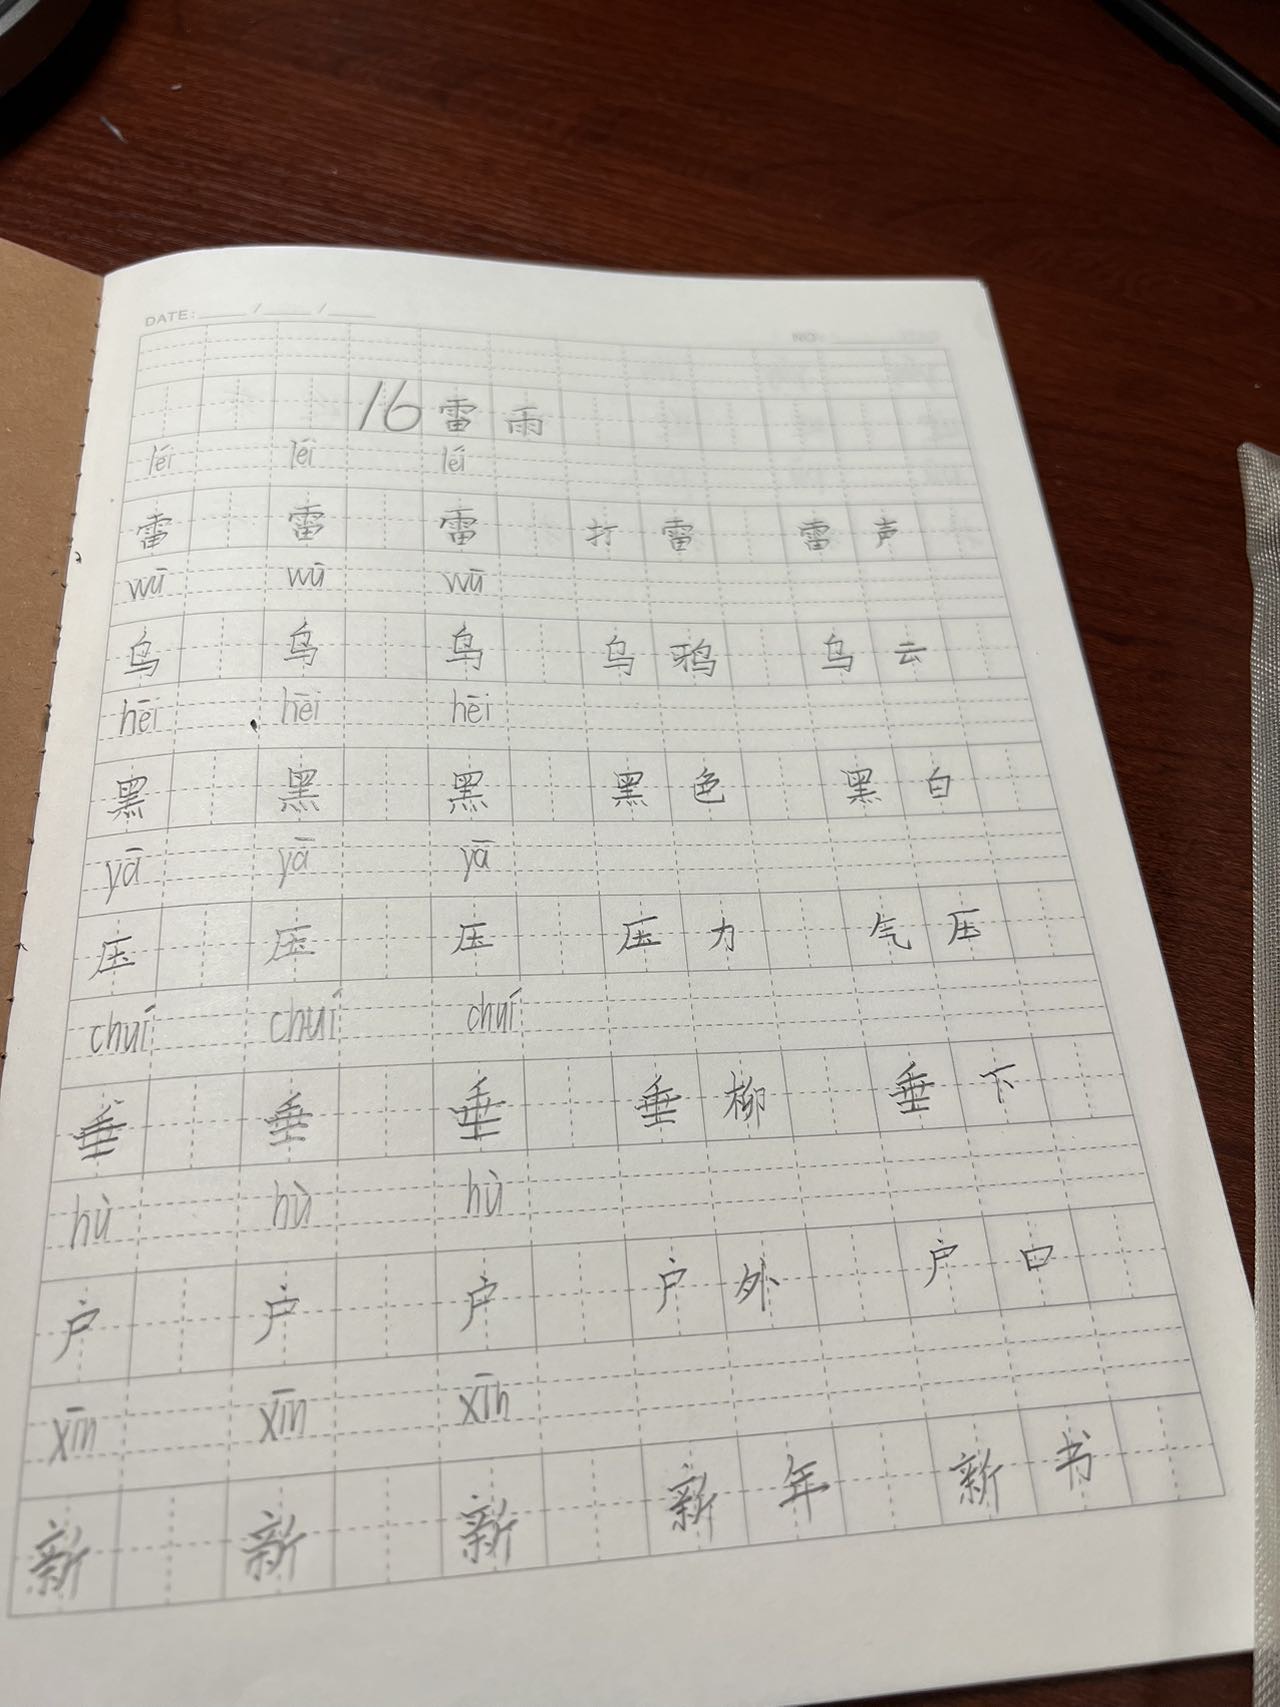 DATE: ____ / ____ / ____
16 雷雨
léi léi léi
雷 雷 雷 打雷 雷声
wū wū wū
乌 乌 乌 乌鸦 乌云
hēi hēi hēi
黑 黑 黑 黑色 黑白
yā yā yā
压 压 压 压力 气压
chuí chuí chuí
垂 垂 垂 垂柳 垂下
hù hù hù
户 户 户 户外 户口
xīn xīn xīn
新 新 新 新年 新书